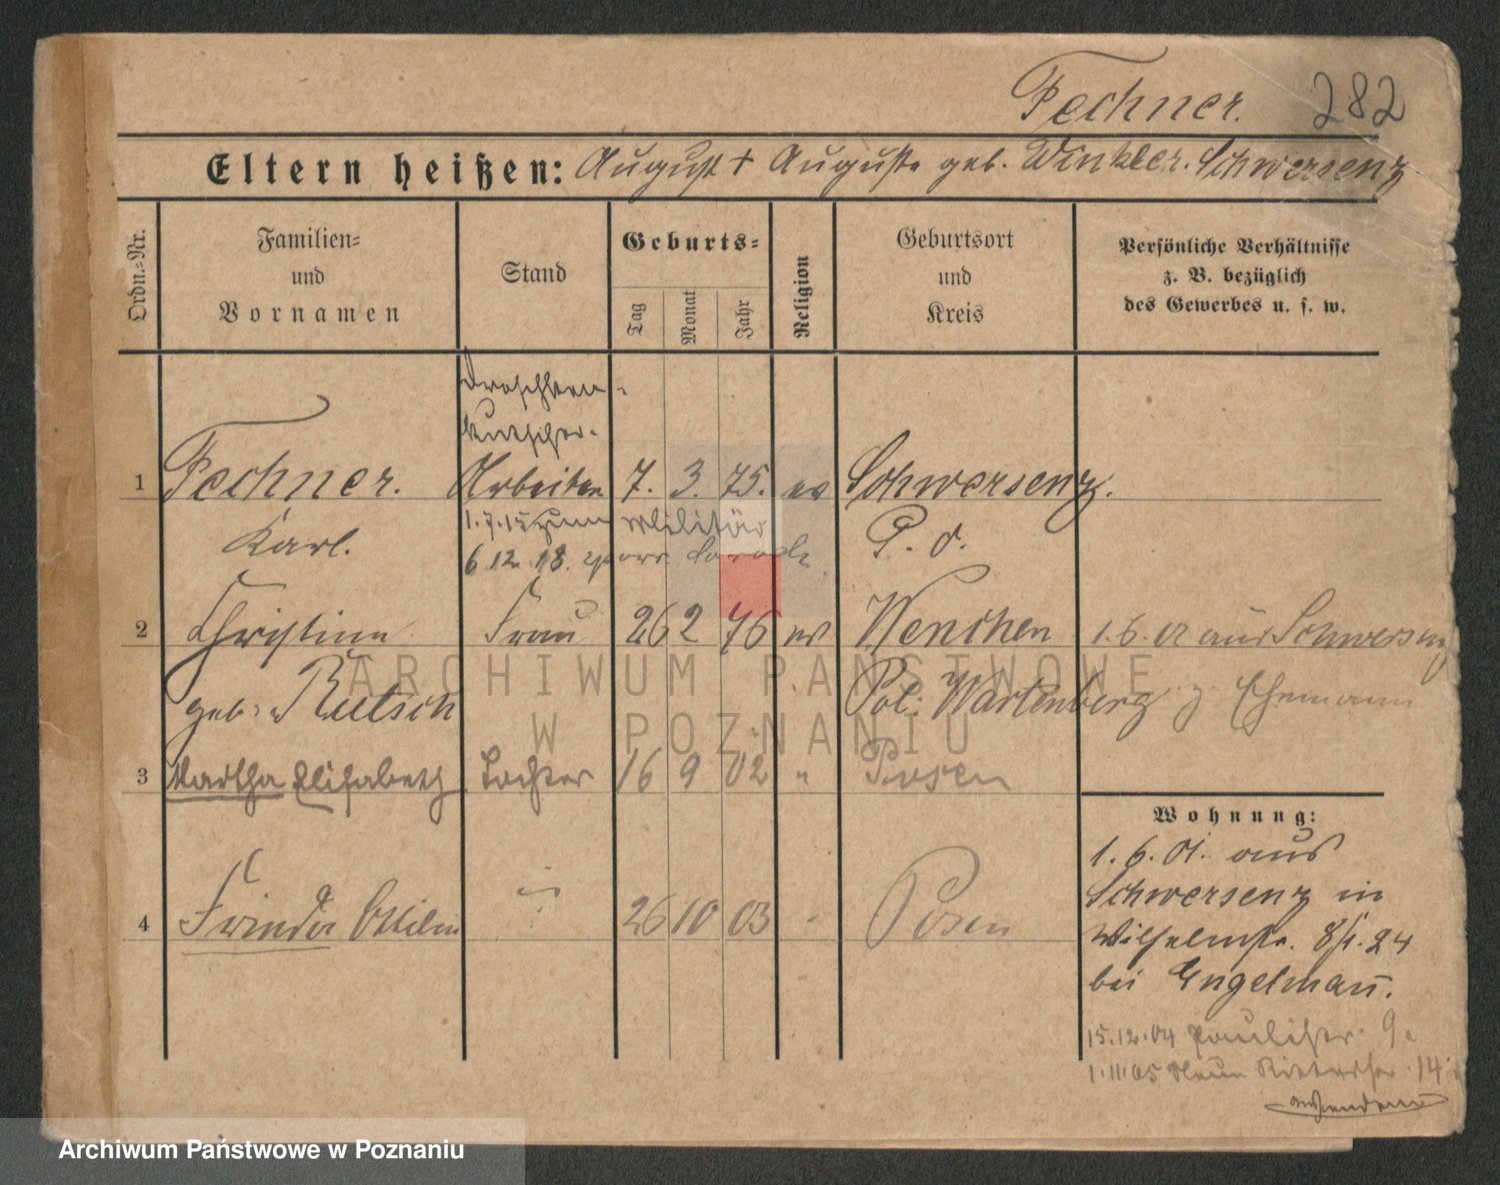 Fechner. 282
Eltern heißen: August + Auguste geb. Winkler. Schwersenz
Ordn.-Nr.
Familien-
und
Vornamen
Stand
Geburts-
Tag
Monat
Jahr
Religion
Geburtsort
und
Kreis
Persönliche Verhältnisse
z. B. bezüglich
des Gewerbes u. s. w.
Droschken-
kutscher.
1 Fechner. Arbeiter 7. 3. 75. ev Schwersenz.
1.7.15 zum Militär
Karl. P. O.
6.12.18. zurück
2 Christine Frau 26 2 76 ev Wenchen 1.6.01 aus Schwersenz
geb. Rutsch Pol. Wartenberg z. Ehemann
3 Martha Elisabeth Tochter 16 9 02 " Posen
Wohnung:
1.6.01. aus
Schwersenz in
4 Frieda Ottilie " 26 10 03 - Posen
Wilhelmstr. 24
bei Engelmann.
15.12.04 Paulistr. 9.
1.11.05 Neue 14
Wenden
ARCHIWUM PAŃSTWOWE
W POZNANIU
Archiwum Państwowe w Poznaniu